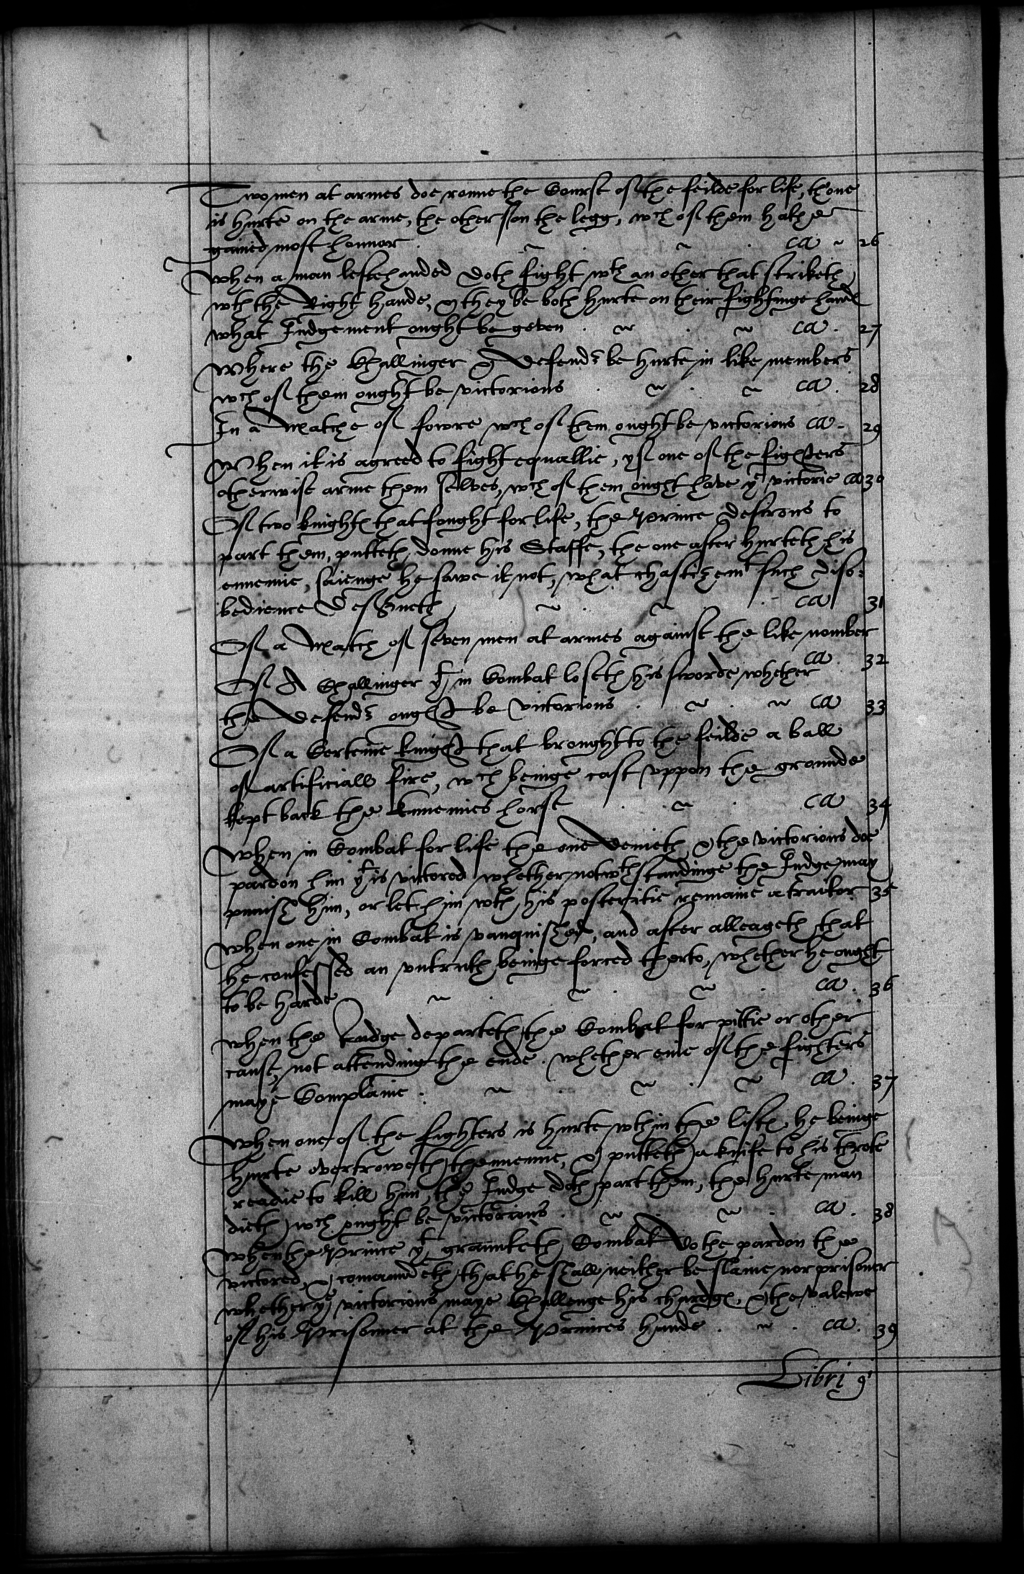 Two men at armes doe ronne the Course of the feilde for life, thone
is hurte on the arme, the other on the legg, wch of them hathe
gained most honnor ~ ~ ca ~ 26
When a man lefte handed doth fight wth an other that striketh
wth the Right hande, & they be both hurte on their fightinge hand
what Judgement ought be geven . ~ . ~ ca . 27
Where the Challinger & Defendr be hurte in like members
wch of them ought be victorious . ~ . ~ ca . 28
In a Matche of fowre wch of them ought be victorious ca . 29
When it is agreed to fight equallie, yf one of the fighters
otherwise arme them selves, wch of them ought have ye victorie ca 30
Of two knights that fought for life, the Prince desirous to
part them, putteth donne his Staffe, the one after hurteth his
ennemie, saienge he sawe it not, what chastizemt such diso-
bedience Deserveth ~ ~ ca 31
Of a Match of seven men at armes against the like nomber
ca . 32
Of A Challinger yt in Combat loseth his sworde, whether
the Defendr ought be victorious . ~ . ~ ca 33
Of a Certeine knight that brought to the feilde a ball
of artificiall fire, wch beinge cast uppon the grounde
kept back the Ennemies horse . ~ . ca 34
When in Combat for life the one denieth & the victorious doe
pardon him yt is victored whether notwthstandinge the Judge may
punish him, or let him wth his posteritie remaine a traitor 35
When one in Combat is vanquished, and after alleageth that
he confessed an untruth beinge forced therto, whether he ought
to be harde ~ ~ ~ ca . 36
When the Judge departeth the Combat for pittie or other
cause, not attending the ende. whether one of the fighters
maye Complaine . ~ ~ ~ ca . 37
When one of the fighters is hurte wthin the lists he beinge
hurte overtroweth thennemie, & putteth a knife to his throte
readie to kill him, the Judge doth part them, the hurte man
dieth, wch ought be victorious . ~ ~ . ca . 38
When the Prince yt graunteth Combat do the pardon the
victored, & comaundeth, that he shall neither be slaine nor prisoner
whether ye victorious maye Challenge his chardge, & the valewe
of his Prisoner at the Princes hande . ~ . ca . 39
Libri 9i